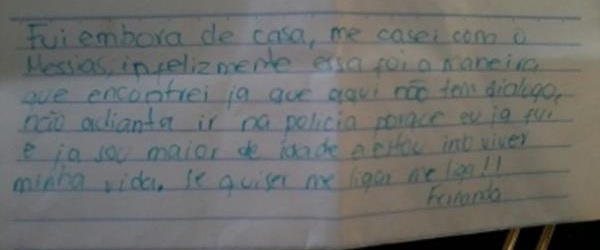 Fui embora de casa, me casei com o
Messias, infelizmente essa foi a maneira
que encontrei ja que aqui não tem dialogo,
não adianta ir na policia porque eu ja fui
e ja sou maior de idade e estou indo viver
minha vida. Se quiser me ligar me liga!!
Fernanda